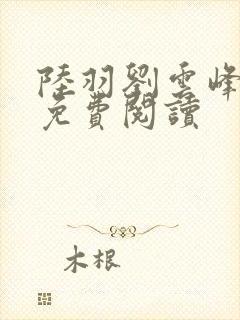 陸羽劉雲峰
免費閱讀
木根